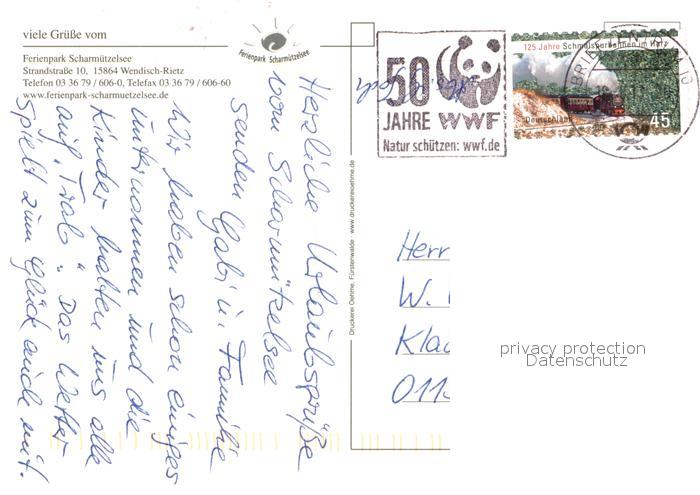 viele Grüße vom
Ferienpark Scharmützelsee
Ferienpark Scharmützelsee
Strandstraße 10, 15864 Wendisch-Rietz
Telefon 03 36 79 / 606-0, Telefax 03 36 79 / 606-60
www.ferienpark-scharmuetzelsee.de
Herzliche Urlaubsgrüße
vom Scharmützelsee
senden Gabi u. Familie
Wir haben schon einiges
unternommen und die
Kinder halten uns alle
auf "Trab". Das Wetter
spielt zum Glück auch mit.
Druckerei Oehme, Fürstenwalde · www.druckereioehme.de
50
JAHRE WWF
Natur schützen: wwf.de
125 Jahre Schmalspurbahnen im Harz
Deutschland
45
BRIEFZENTRUM
Herr
W.
Kla
011
privacy protection
Datenschutz